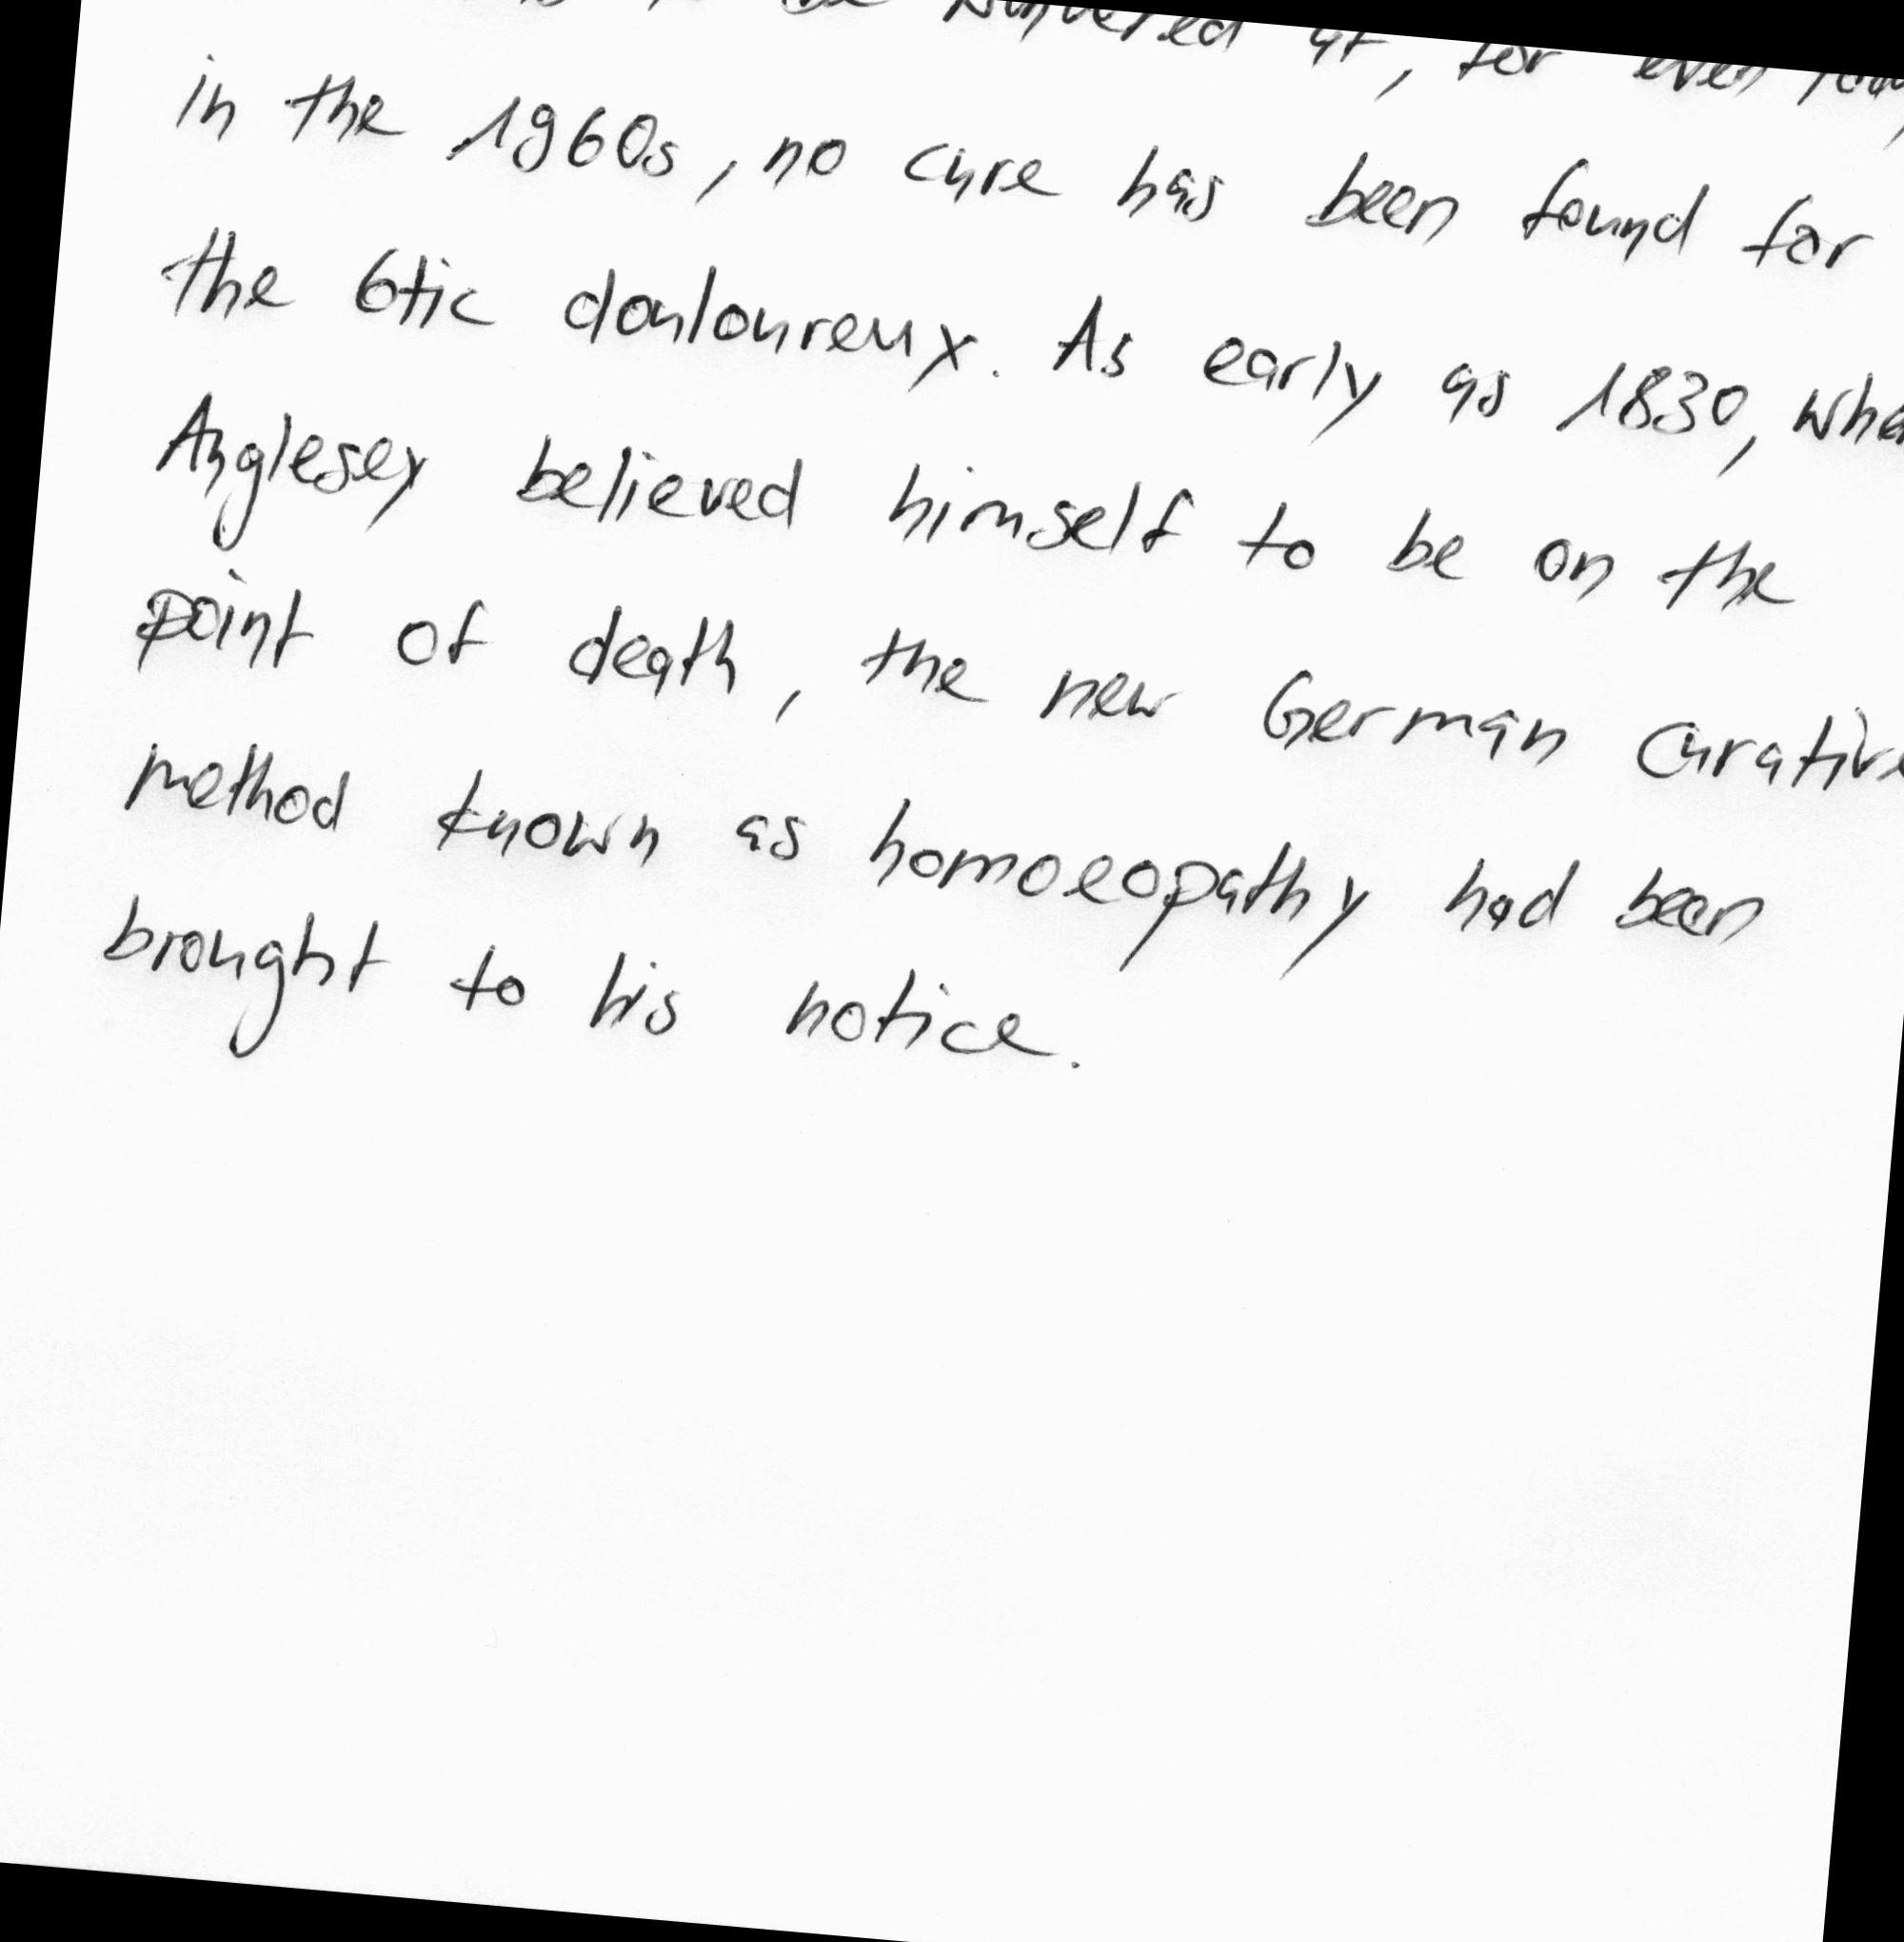 at, for even today,
in the 1960s, no cure has been found for
the 6tic donloureux. As early as 1830, when
Anglesey believed himself to be on the
point of death, the new German curative
method known as homoeopathy had been
brought to his notice.